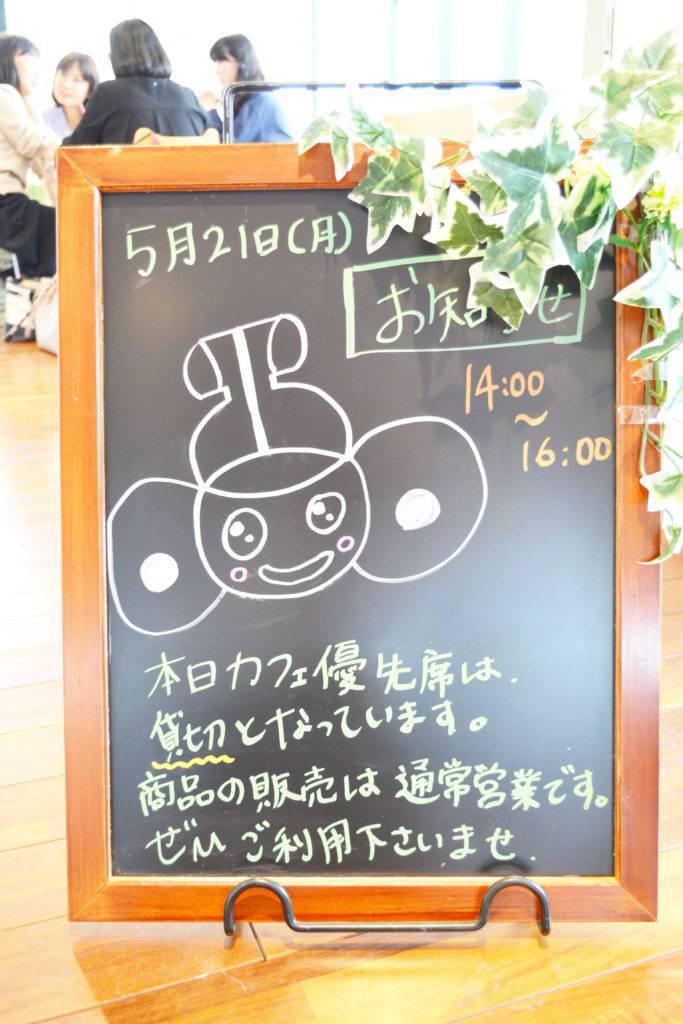 5月21日(月)
お知らせ
14:00
～
16:00
本日カフェ優先席は、
貸切となっています。
商品の販売は通常営業です。
ぜひご利用下さいませ.